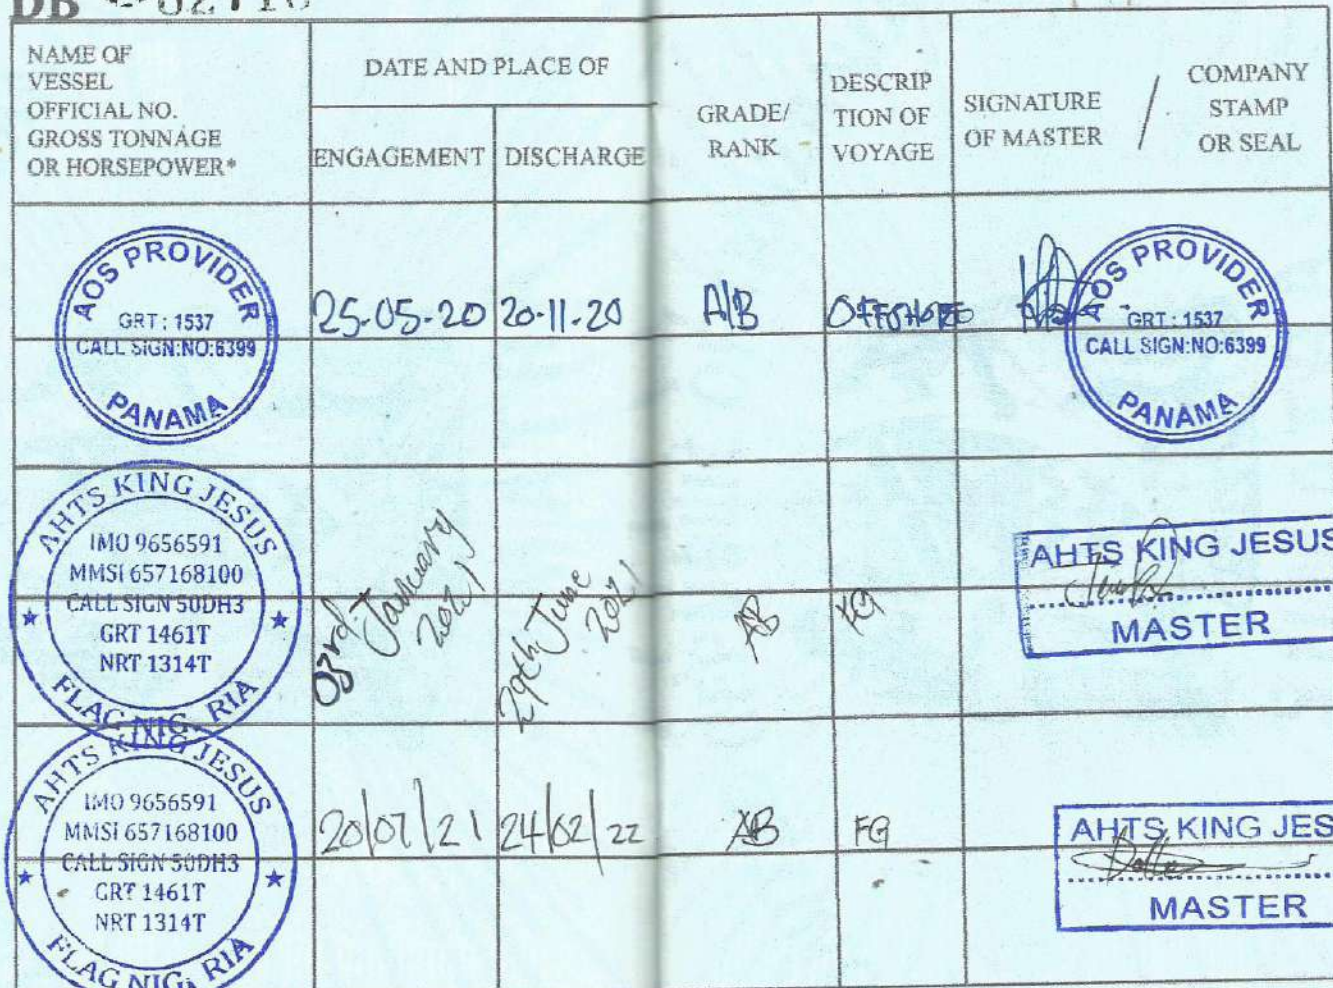 DB
NAME OF
VESSEL
OFFICIAL NO.
GROSS TONNAGE
OR HORSEPOWER*
DATE AND PLACE OF
ENGAGEMENT
DISCHARGE
GRADE/
RANK
DESCRIP
TION OF
VOYAGE
SIGNATURE
OF MASTER
/
COMPANY
STAMP
OR SEAL
AOS PROVIDER
GRT : 1537
CALL SIGN:NO:6399
PANAMA
25-05-20
20-11-20
A/B
OFFSHORE
AOS PROVIDER
GRT : 1537
CALL SIGN:NO:6399
PANAMA
AHTS KING JESUS
IMO 9656591
MMSI 657168100
CALL SIGN 5ODH3
GRT 1461T
NRT 1314T
FLAG NIG. RIA
03rd January
2021
29th June
2021
AB
AHTS KING JESUS
MASTER
AHTS KING JESUS
IMO 9656591
MMSI 657168100
CALL SIGN 5ODH3
GRT 1461T
NRT 1314T
FLAG NIG. RIA
20/07/21
24/02/22
AB
FG
AHTS KING JES
MASTER